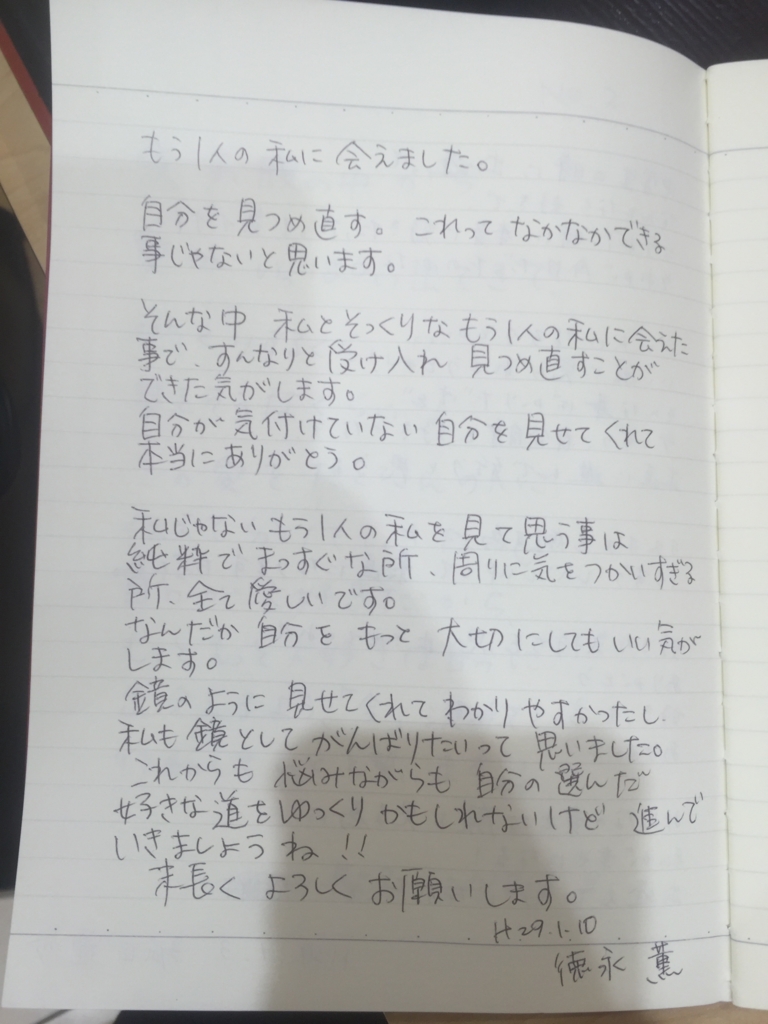 もう1人の 私に 会えました。
自分を 見つめ直す。 これって なかなかできる
事じゃないと思います。
そんな中 私とそっくりな もう1人の私に会えた
事で、すんなりと 受け入れ 見つめ直すことが
できた気がします。
自分が 気付けていない 自分を 見せてくれて
本当にありがとう。
私じゃない もう1人の 私を 見て 思う事は
純粋で まっすぐな所、周りに気をつかいすぎる
所、全て 愛しいです。
なんだか 自分を もっと 大切にしてもいい気が
します。
鏡のように 見せてくれて わかりやすかったし、
私も鏡として がんばりたいって 思いました。
これからも 悩みながらも 自分の選んだ
好きな道を ゆっくりかもしれないけど 進んで
いきましょうね!!
末長く よろしく お願いします。
H.29.1.10
徳永 薫